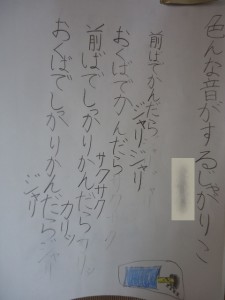 色んな音がするじゃがりこ
前ばでかんだら
ジャリジャリ
おくばでかんだら
サクサク
前ばでしっかりかんだら
カリッ
おくばでしっかりかんだらジャリ
ジャリ